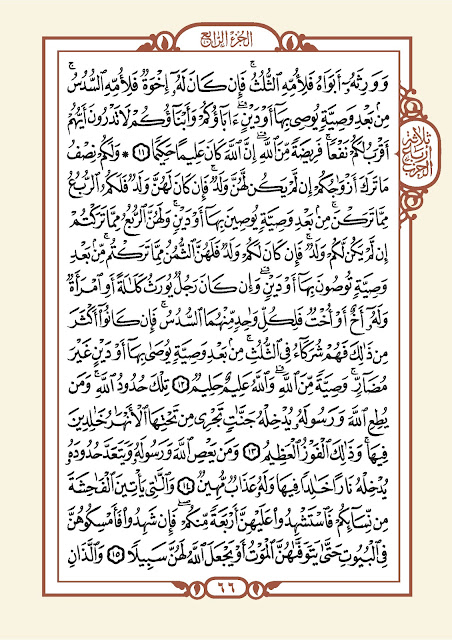 الجزء الرابع
وَوَرِثَهُۥٓ أَبَوَاهُ فَلِأُمِّهِ ٱلثُّلُثُ ۚ فَإِن كَانَ لَهُۥٓ إِخْوَةٌ فَلِأُمِّهِ ٱلسُّدُسُ ۚ
مِنۢ بَعْدِ وَصِيَّةٍ يُوصِى بِهَآ أَوْ دَيْنٍ ۗ ءَابَآؤُكُمْ وَأَبْنَآؤُكُمْ لَا تَدْرُونَ أَيُّهُمْ
أَقْرَبُ لَكُمْ نَفْعًا ۚ فَرِيضَةً مِّنَ ٱللَّهِ ۗ إِنَّ ٱللَّهَ كَانَ عَلِيمًا حَكِيمًا ١١ * وَلَكُمْ نِصْفُ
مَا تَرَكَ أَزْوَٰجُكُمْ إِن لَّمْ يَكُن لَّهُنَّ وَلَدٌ ۚ فَإِن كَانَ لَهُنَّ وَلَدٌ فَلَكُمُ ٱلرُّبُعُ
مِمَّا تَرَكْنَ ۚ مِنۢ بَعْدِ وَصِيَّةٍ يُوصِينَ بِهَآ أَوْ دَيْنٍ ۚ وَلَهُنَّ ٱلرُّبُعُ مِمَّا تَرَكْتُمْ
إِن لَّمْ يَكُن لَّكُمْ وَلَدٌ ۚ فَإِن كَانَ لَكُمْ وَلَدٌ فَلَهُنَّ ٱلثُّمُنُ مِمَّا تَرَكْتُم ۚ مِّنۢ بَعْدِ
وَصِيَّةٍ تُوصُونَ بِهَآ أَوْ دَيْنٍ ۗ وَإِن كَانَ رَجُلٌ يُورَثُ كَلَٰلَةً أَوِ ٱمْرَأَةٌ
وَلَهُۥٓ أَخٌ أَوْ أُخْتٌ فَلِكُلِّ وَٰحِدٍ مِّنْهُمَا ٱلسُّدُسُ ۚ فَإِن كَانُوٓا۟ أَكْثَرَ
مِن ذَٰلِكَ فَهُمْ شُرَكَآءُ فِى ٱلثُّلُثِ ۚ مِنۢ بَعْدِ وَصِيَّةٍ يُوصَىٰ بِهَآ أَوْ دَيْنٍ غَيْرَ
مُضَآرٍّ ۚ وَصِيَّةً مِّنَ ٱللَّهِ ۗ وَٱللَّهُ عَلِيمٌ حَلِيمٌ ١٢ تِلْكَ حُدُودُ ٱللَّهِ ۚ وَمَن
يُطِعِ ٱللَّهَ وَرَسُولَهُۥ يُدْخِلْهُ جَنَّٰتٍ تَجْرِى مِن تَحْتِهَا ٱلْأَنْهَٰرُ خَٰلِدِينَ
فِيهَا ۚ وَذَٰلِكَ ٱلْفَوْزُ ٱلْعَظِيمُ ١٣ وَمَن يَعْصِ ٱللَّهَ وَرَسُولَهُۥ وَيَتَعَدَّ حُدُودَهُۥ
يُدْخِلْهُ نَارًا خَٰلِدًا فِيهَا وَلَهُۥ عَذَابٌ مُّهِينٌ ١٤ وَٱلَّٰتِى يَأْتِينَ ٱلْفَٰحِشَةَ
مِن نِّسَآئِكُمْ فَٱسْتَشْهِدُوا۟ عَلَيْهِنَّ أَرْبَعَةً مِّنكُمْ ۖ فَإِن شَهِدُوا۟ فَأَمْسِكُوهُنَّ
فِى ٱلْبُيُوتِ حَتَّىٰ يَتَوَفَّىٰهُنَّ ٱلْمَوْتُ أَوْ يَجْعَلَ ٱللَّهُ لَهُنَّ سَبِيلًا ١٥ وَٱلَّذَانِ
ثلاثة
أرباع
الجزء
٦٦